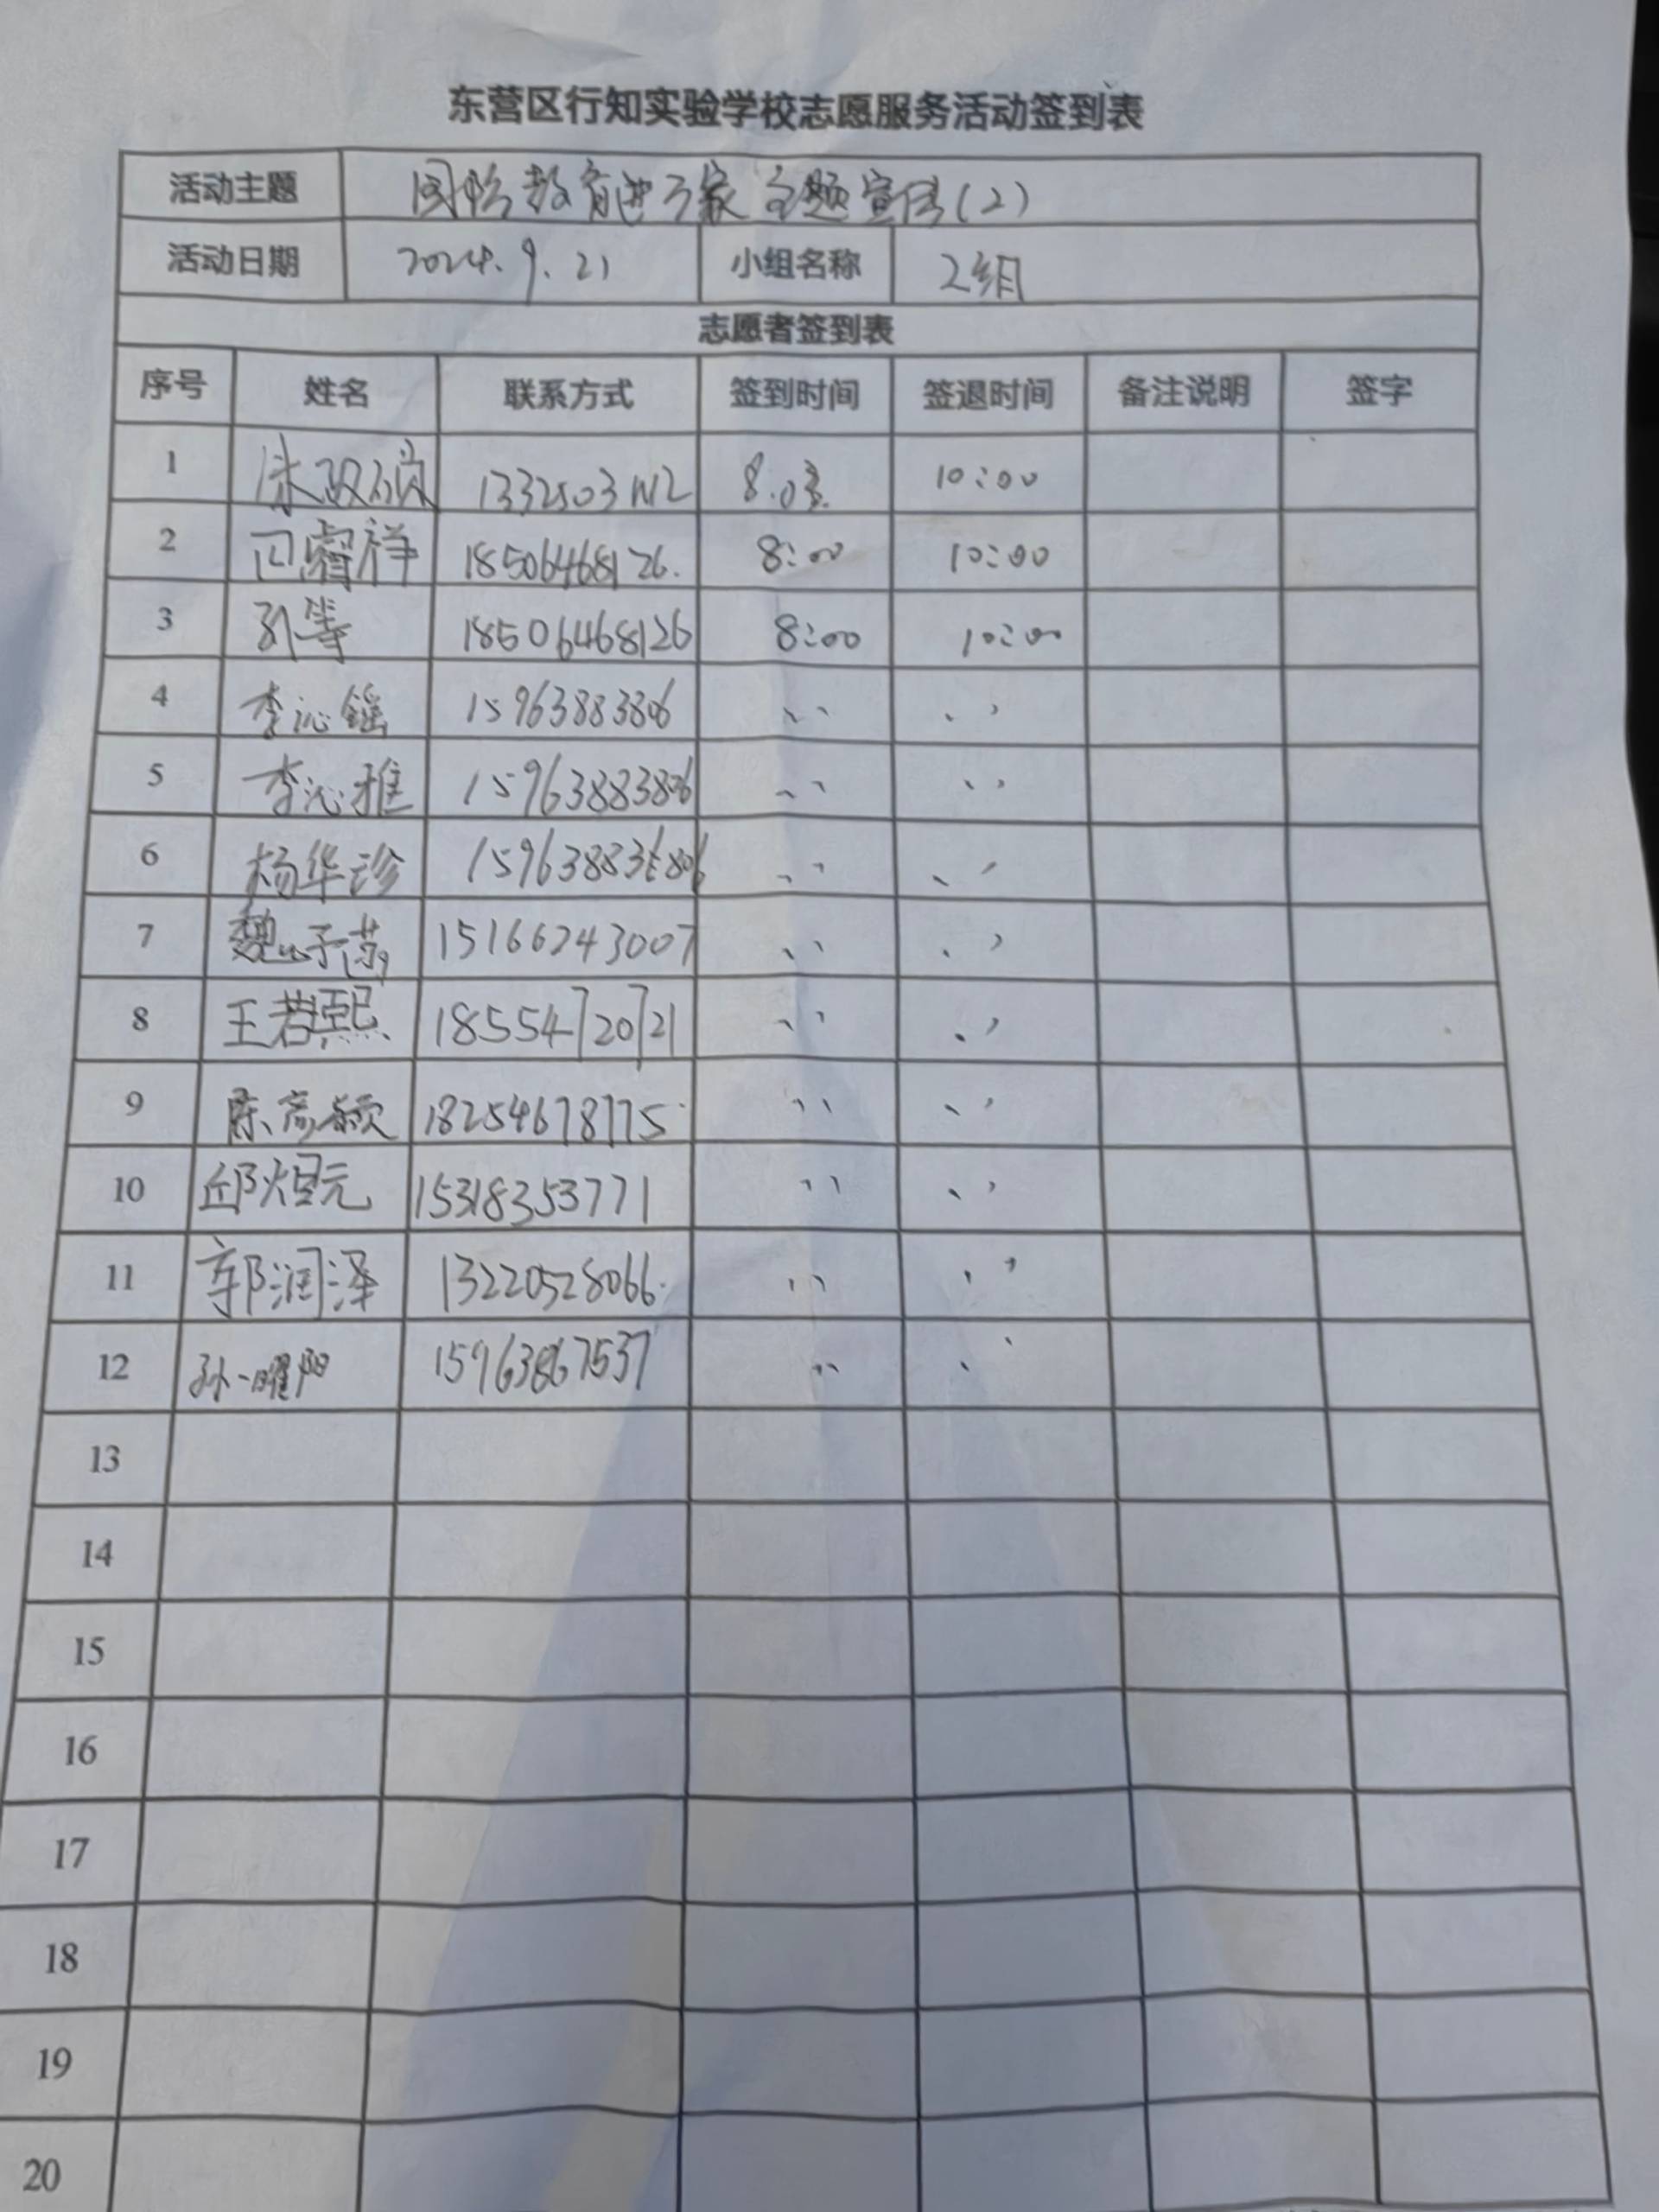 东营区行知实验学校志愿服务活动签到表
活动主题 国防教育进万家主题宣传(2)
活动日期 2024.9.21 小组名称 2组
志愿者签到表
序号 姓名 联系方式 签到时间 签退时间 备注说明 签字
1 8.0 10:00
2 睿祥 18506468126. 8:00 10:00
3 18506468126 8:00 10:00
4 李沁鑫 15963883806 、、 、、
5 李沁雅 15963883806 、、 、、
6 杨华珍 、、 、、
7 魏子 15166243007 、、 、、
8 王若熙 18554720721 、、 、、
9 陈彦颖 18254678775 、、 、、
10 邱煜元 15318353771 、、 、、
11 郭润泽 13220528066. 、、 、、
12 孙一曜阳 15963867537 、、 、、
13
14
15
16
17
18
19
20